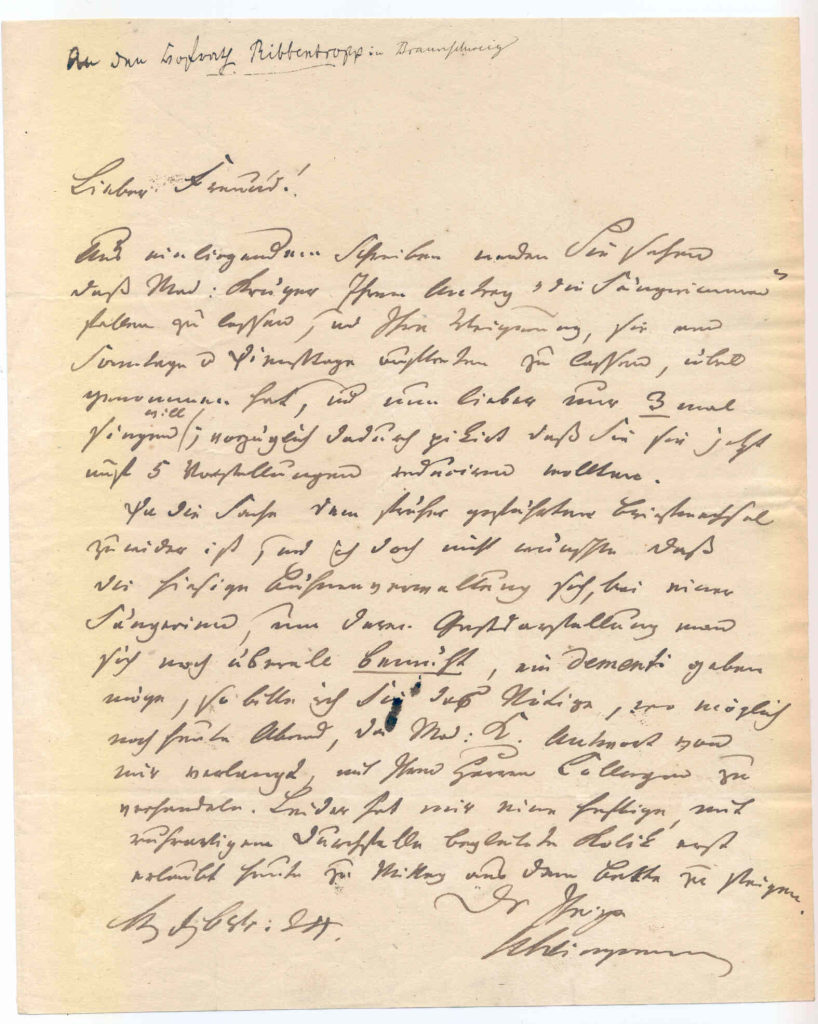 An den Hofrath Ribbentropp in Braunschweig
Lieber Freund!
Aus einliegendem Schreiben werden Sie sehen
daß Mad: Krüger Ihren Antrag "die Sängerinnen"
fallen zu lassen, und Ihre Weigerung, sie am
Sonntage u Dienstage auftreten zu lassen, übel
genommen hat, und nun lieber nur 3 mal
singen will; vorzüglich dadurch pikirt daß Sie sie jetzt
auf 5 Vorstellungen reduciren wollten.
Da die Sache dem früher geführten Briefwechsel
zuwider ist, und ich doch nicht wünschte daß
die hiesige Bühnenverwaltung sich, bei einer
Sängerinn, um deren Gastdarstellung man
sich noch überall bemüht, ein dementi geben
möge, so bitte ich Sie das Nötige, wo möglich
noch heute Abend, da Mad: K. Antwort von
mir verlangt, mit Ihren Herren Collegen zu
verhandeln. Leider hat mir eine heftige, mit
ruhrartigem Durchfalle begleitete Kolik erst
erlaubt heute zu Mittag aus dem Bette zu steigen.
Der Ihrige
Klingemann
24.